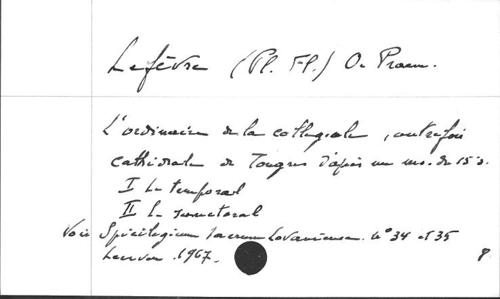 Lefèvre (Pl. Fl.) O. Praem.
L'ordinaire de la collégiale, autrefois
cathédrale de Tongres d'après un ms. du 15e s.
I Le temporal
II Le sanctoral
Voir Spicilegium sacrum Lovaniense. N° 34 et 35
Louvain. 1967.
8.